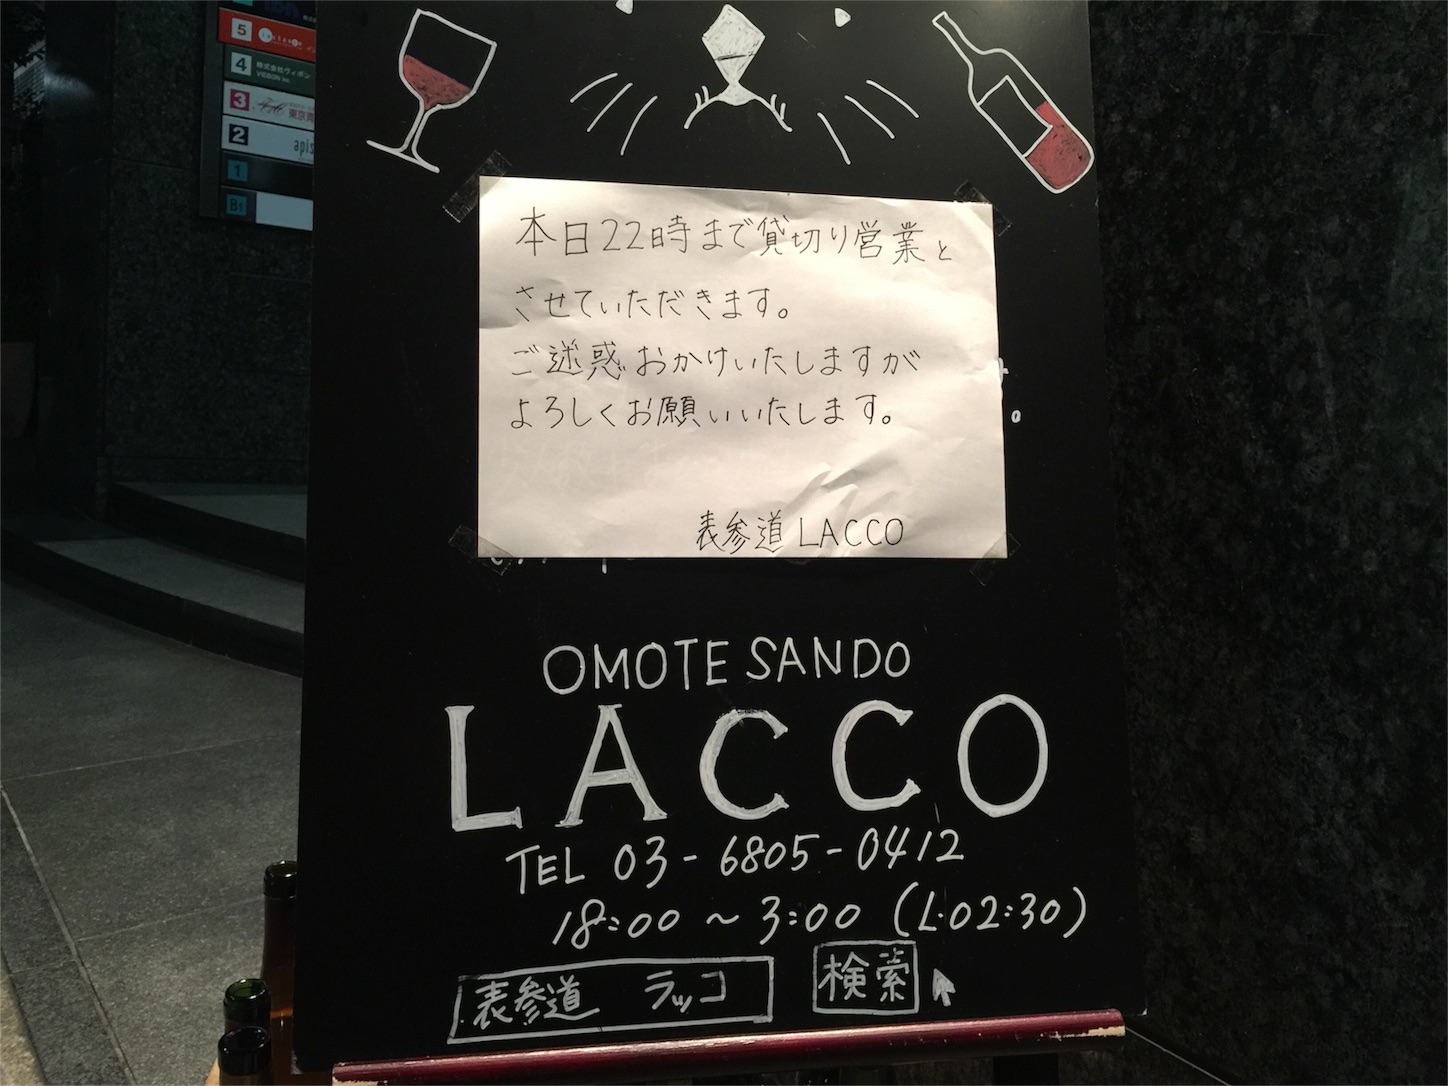 5
4
株式会社ヴィボン
VIBBON inc.
3
2
apis
1
B1
本日22時まで貸切り営業と
させていただきます。
ご迷惑おかけいたしますが
よろしくお願いいたします。
表参道 LACCO
OMOTE SANDO
LACCO
TEL 03-6805-0412
18:00 ~ 3:00 (L.O2:30)
表参道 ラッコ 検索